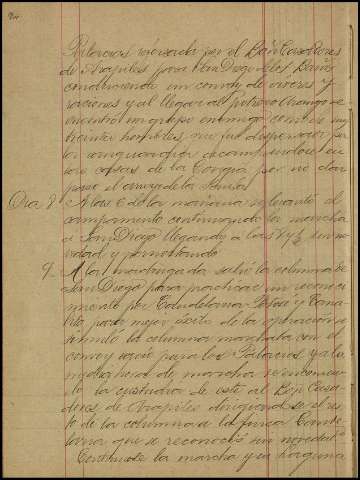 Palacios reforzada por el Bón Cazadores
de Arapiles para San Diego de los Baños
conduciendo un convoy de víveres y
raciones y al llegar al potrero Arango se
encontró un grupo enemigo como de
treinta hombres, que fué dispersado por
la vanguardia acampándose en
las casas de la
paso el arroyo de la
Dia 8 A las 6 de la mañana se levantó el
campamento continuando la marcha
a San Diego llegando a las 7 y ½ sin no-
vedad y pernoctando.
9. A la madrugada salió la columna de
San Diego para practicar un reconoci-
miento por
para mejor éxito de la operación
la columna marchaba con el
convoy vacio para los Palacios y a la
media hora de marcha se encomen-
dó la custodia de este al Bón Caza-
dores de Arapiles dirigiendose el res-
to de la columna a la finca
que se reconoció sin novedad
Continuose la marcha y en